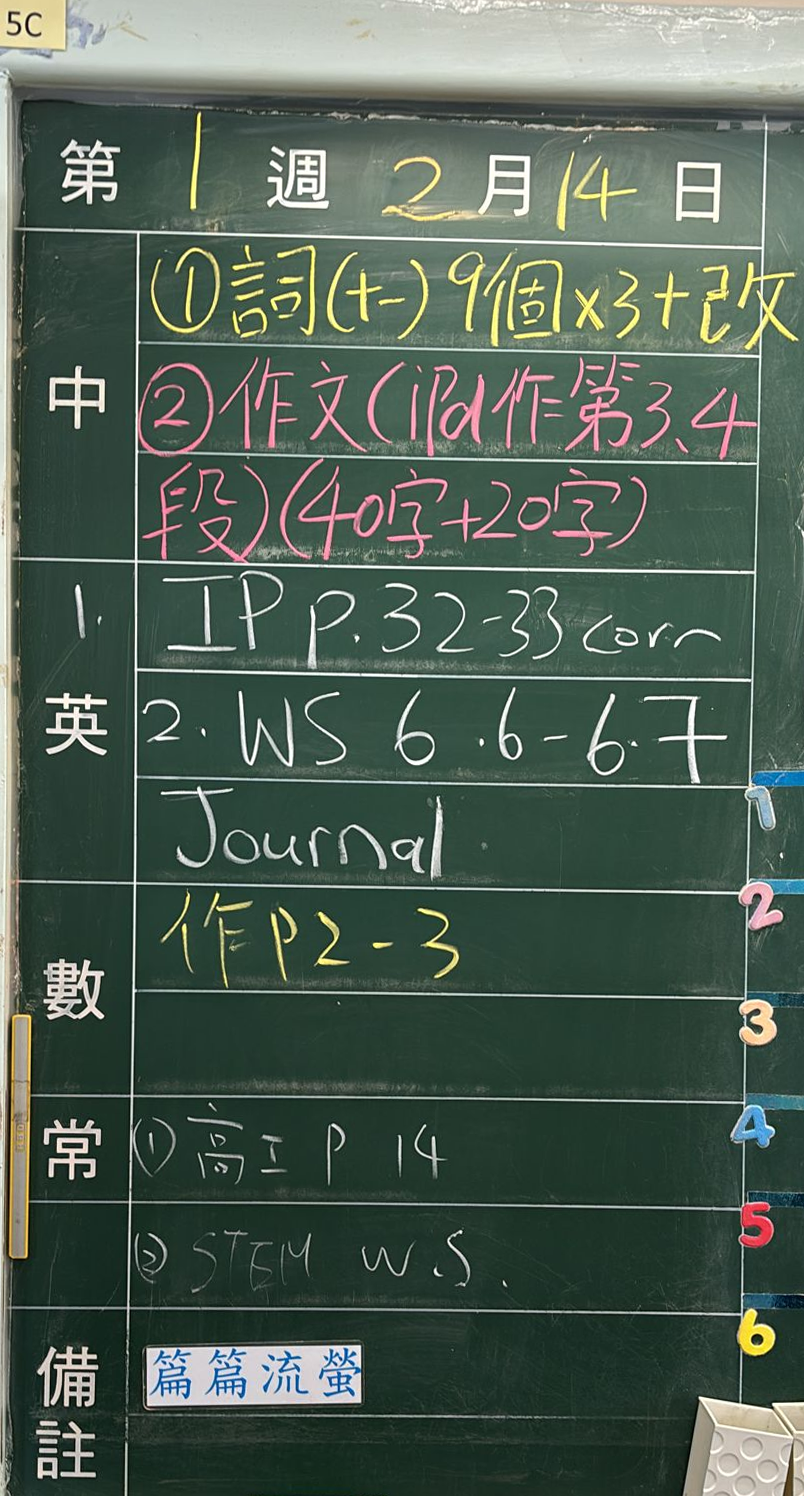 5C
第 1 週 2 月 14 日
中
①詞(十一)9個x3+改
②作文(iPad作第3、4
段)(40字+20字)
英
1. IP p.32-33 corr
2. WS 6.6-6.7
Journal
數
作P2-3
常
①高I P 14
②STEM W.S.
備註
篇篇流螢
1
2
3
4
5
6